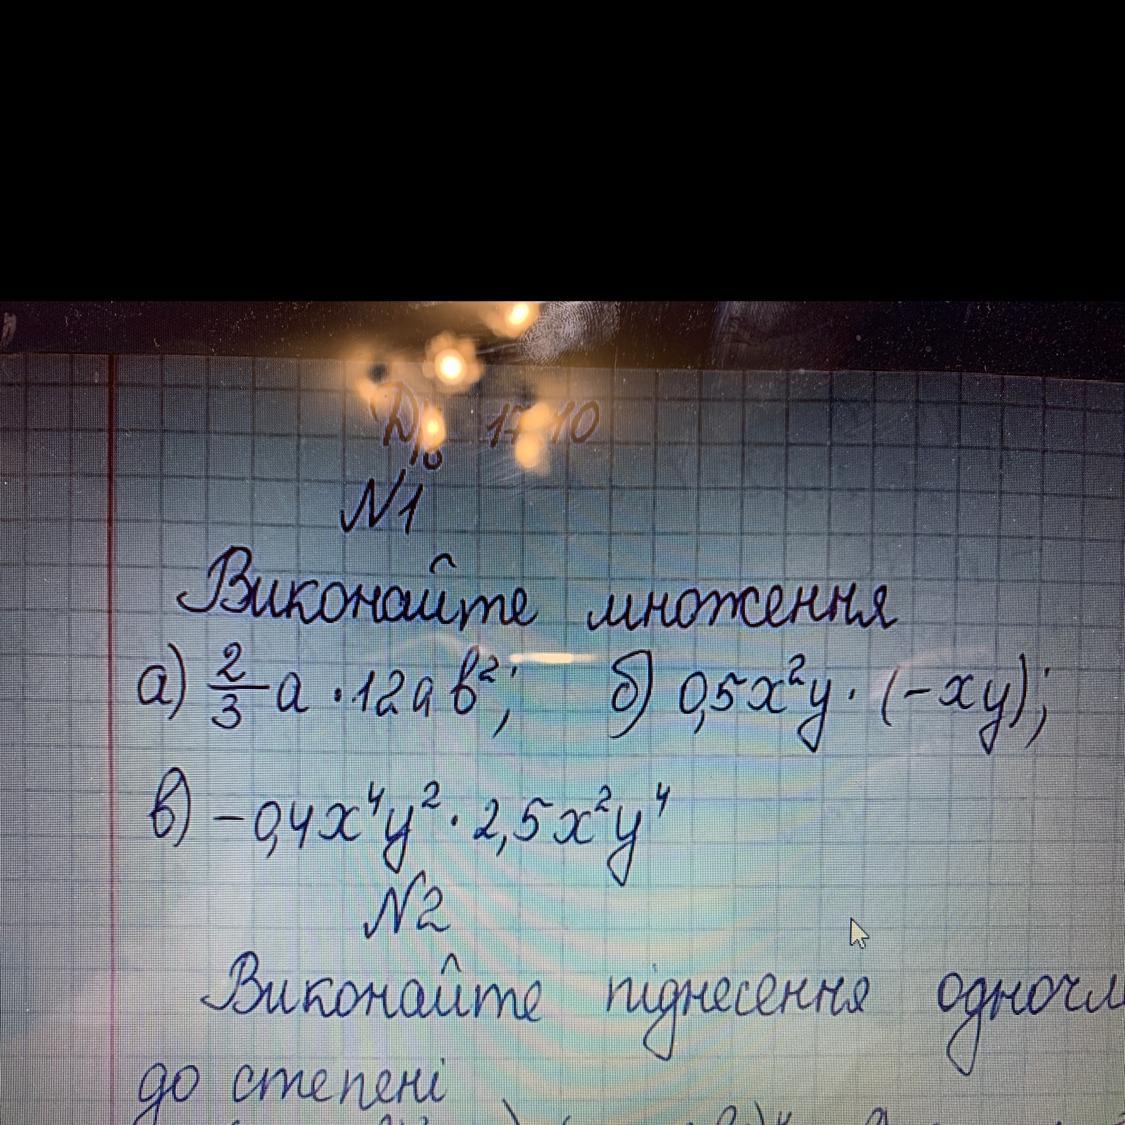 N1
Виконайте множення
а) 2/3 a · 12ab²; б) 0,5x²y · (-xy);
в) -0,4x⁴y² · 2,5x²y⁴
N2
Виконайте піднесення одночл
до степені